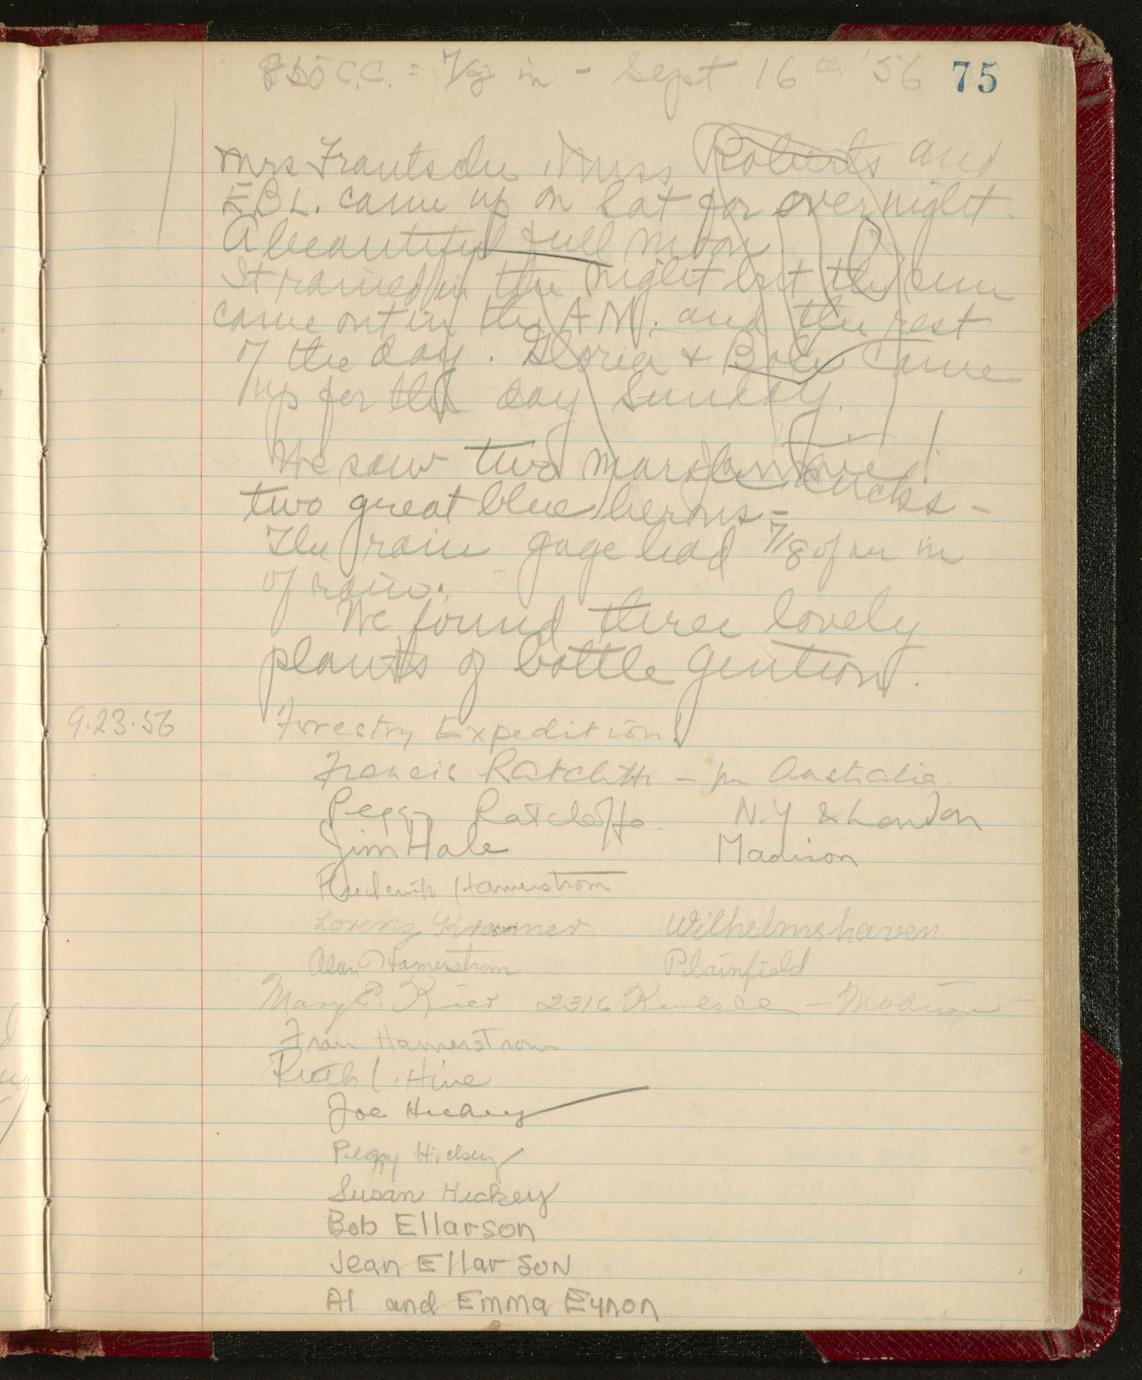 850 C.C. = 7/8 in - Sept 16 '56 75
Mrs Frautschi, Miss Roberts and
E.B.L. came up on Sat for overnight.
A beautiful full moon
It rained in the night but the sun
came out in the A.M. and the rest
of the day. Gloria & Bob came
up for the day Sunday.
We saw two marsh ducks -
two great blue herons -
The rain gage had 7/8 of an in
of rain.
We found three lovely
plants of bottle gention.
9.23.56 Forestry Expedition!
Francis Ratcliffe - Australia
Peggy Ratcliffe N.Y & London
Jim Hale Madison
Frederick Hamerstrom
Lorenz Kramer Wilhelmshaven
Alan Hamerstrom Plainfield
Mary E. Kier 2316 Kendall - Madison
Fran Hamerstrom
Ruth L. Hine
Joe Hickey
Peggy Hickey
Susan Hickey
Bob Ellarson
Jean Ellarson
Al and Emma Eynon